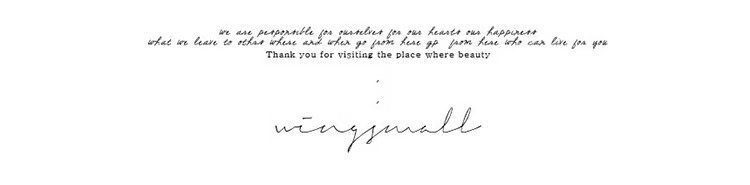 we are personsible for ourselves for our hearts our happiness
what we leave to othrs where and when go from here gp from here who can live for you
Thank you for visiting the place where beauty
,
,
wingsmall